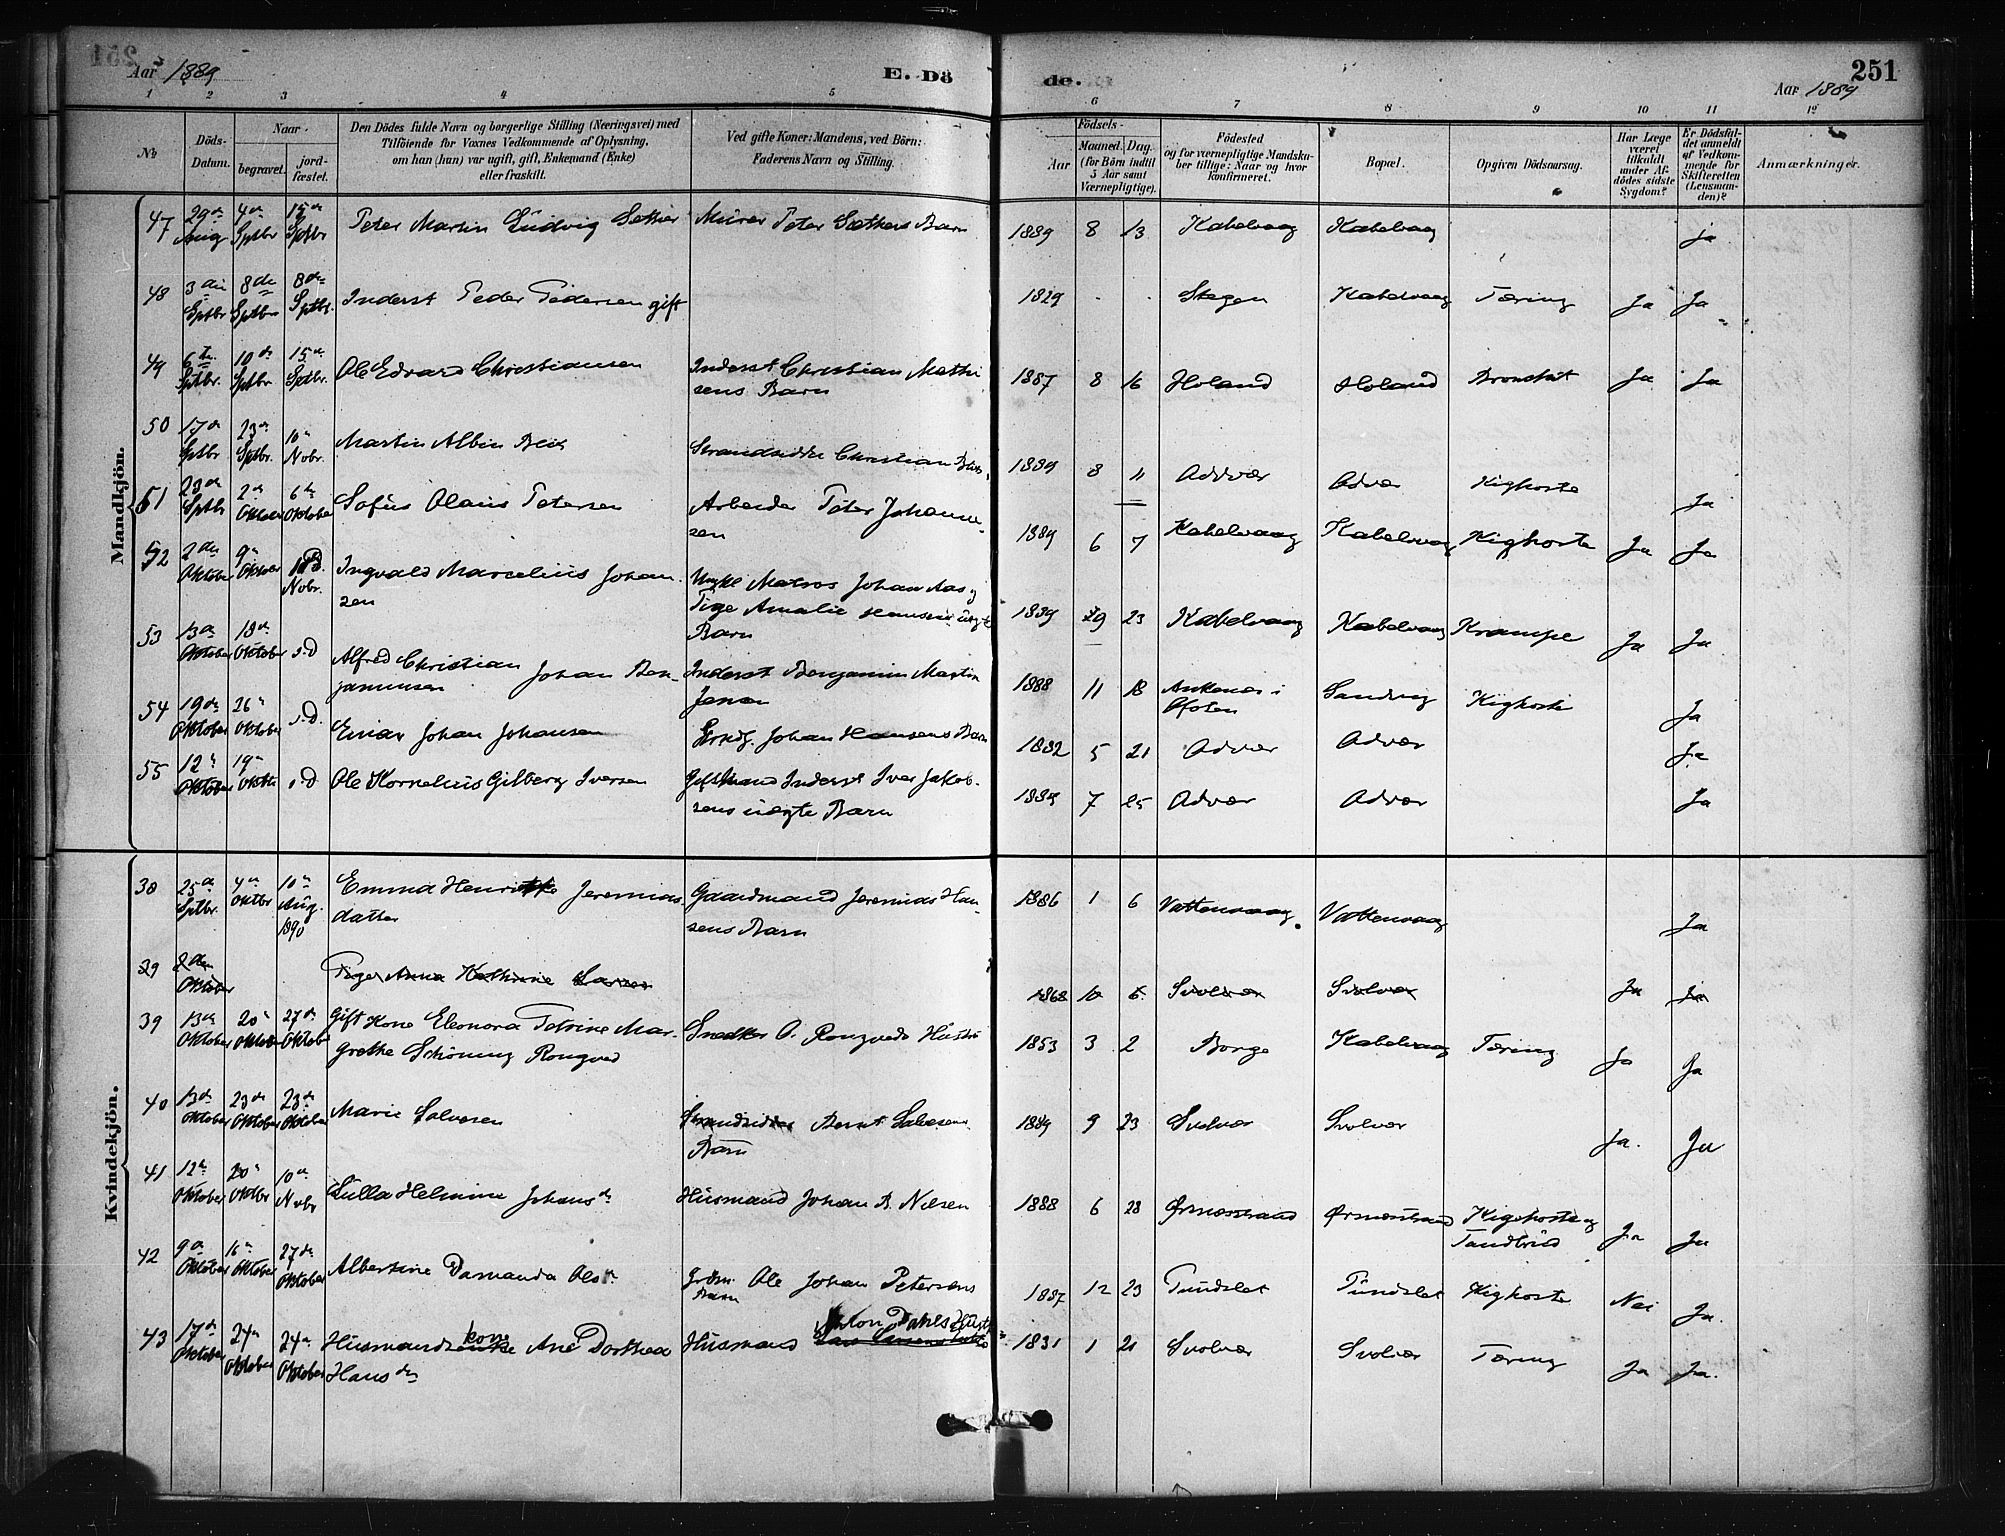 251
Aar 1889
E. Dö
de.
251
Aar 1889
1 2 3 4 5 6 7 8 9 10 11 12
No
Döds-Datum.
Naar
begravet.
jord-fæstet.
Den Dödes fulde Navn og borgerlige Stilling (Næringsvei) med
Tilföiende for Voxnes Vedkommende af Oplysning,
om han (hun) var ugift, gift, Enkemand (Enke)
eller fraskilt.
Ved gifte Koner: Mandens, ved Börn:
Faderens Navn og Stilling.
Födsels-
Aar
Maaned. Dag.
(for Börn indtil
5 Aar samt
Værnepligtige).
Födested
og for værnepligtige Mandska-
ber tillige: Naar og hvor
konfirmeret.
Bopæl.
Opgiven Dödsaarsag.
Har Læge
været
tilkaldt
under Af-
dödes sidste
Sygdom?
Er Dödsfal-
det anmeldt
af Vedkom-
mende for
Skifteretten
(Lensman-
den)?
Anmærkninger.
Mandkjön.
47 29de Aug 4de Sptbr 15de Sptbr Peter Martin Ludvig Sether Murer Peter Sæthers Barn 1889 8 13 Kabelvaag Kabelvaag ja
48 3die Sptbr 8de Sptbr 8de Sptbr. Inderst Peder Pedersen gift 1829 Stegen Kabelvaag Tæring Ja Ja
49 6te Sptbr. 10de Sptbr 15de Sptbr. Ole Edvard Christiansen Inderst Christian Mathi
sens Barn 1887 8 16 Holand Holand Bronchit Ja Ja
50 17de Sptbr 23de Sptbr. 10de Nobr. Martin Albin Strandsidder Christian 1889 8 11 Advær Advær Kighoste Ja
51 23de Sptbr 2de Oktober 6te Oktober Sofus Olaus Petersen Arbeider Peter Johanne-
sen 1889 6 7 Kabelvaag Kabelvaag Kighoste Ja Ja
52 2den Oktober 9de Oktober Nobr. Ingvald Marcelius Johan
sen Matros Johan Aas og
Pige Amalie Hansens uægte
Barn 1889 9 23 Kabelvaag Kabelvaag Krampe Ja Ja
53 13de Oktober 18de Oktober s.D Alfred Christian Johan Ben-
jaminsen Inderst Benjamin Martin
Jensen 1888 11 18 Ankenes i
Ofoten Sandvig Kighoste Ja
54 19de Oktober 26de Oktober s.D. Einar Johan Johansen Johan Hansens Barn 1882 5 21 Advær Advær Ja
55 12te Oktober 19de Oktbr s.D Ole Kornelius Gilberg Iversen Gift Mand Inderst Iver Jakob-
sens uægte Barn 1889 7 25 Advær Advær Ja
Kvindekjön.
38 25de Sptbr. 4de Oktbr 10de Aug. 1890 Emma Henrikke Jeremias
datter Gaardmand Jeremias Han-
sens Barn 1886 1 6 Vattervaag Vattervaag Ja
39 2den Oktober Pige Anna Kathrine Larsen 1868 10 6 Svolvær Svolvær Ja Ja
39 13de Oktober 20de Oktober 27de Oktober Gift Kone Eleonora Petrine Mar-
grethe Schöning Rongved Snedker O. Rongveds Hustru 1853 3 2 Borge Kabelvaag Tæring Ja Ja
40 13de Oktober 23de Oktober 23de Oktober Marie Salvesen Strandsidder Bernt Salvesens
Barn 1889 9 23 Svolvær Svolvær Ja. Ja
41 12te Oktober 20de Oktbr 10de Nobr Lulla Helmine Johansdr Husmand Johan B. Nilsen 1888 6 28 Ørsnesstrand Ørsnesstrand Kighoste og
Tandbrud Ja Ja
42 9de Oktober 16de Oktober 27de Oktober Albertine Damanda Olsdr Grdm. Ole Johan Petersens
Barn 1887 12 23 Pundslet Pundslet Kighoste Nei Ja.
43 17de Oktober 24de Oktober 24de Oktober Husmandskone Ane Dorthea
Hansdr Husmand Anton Dahls Hustru 1831 1 21 Svolvær Svolvær Tæring Ja Ja.